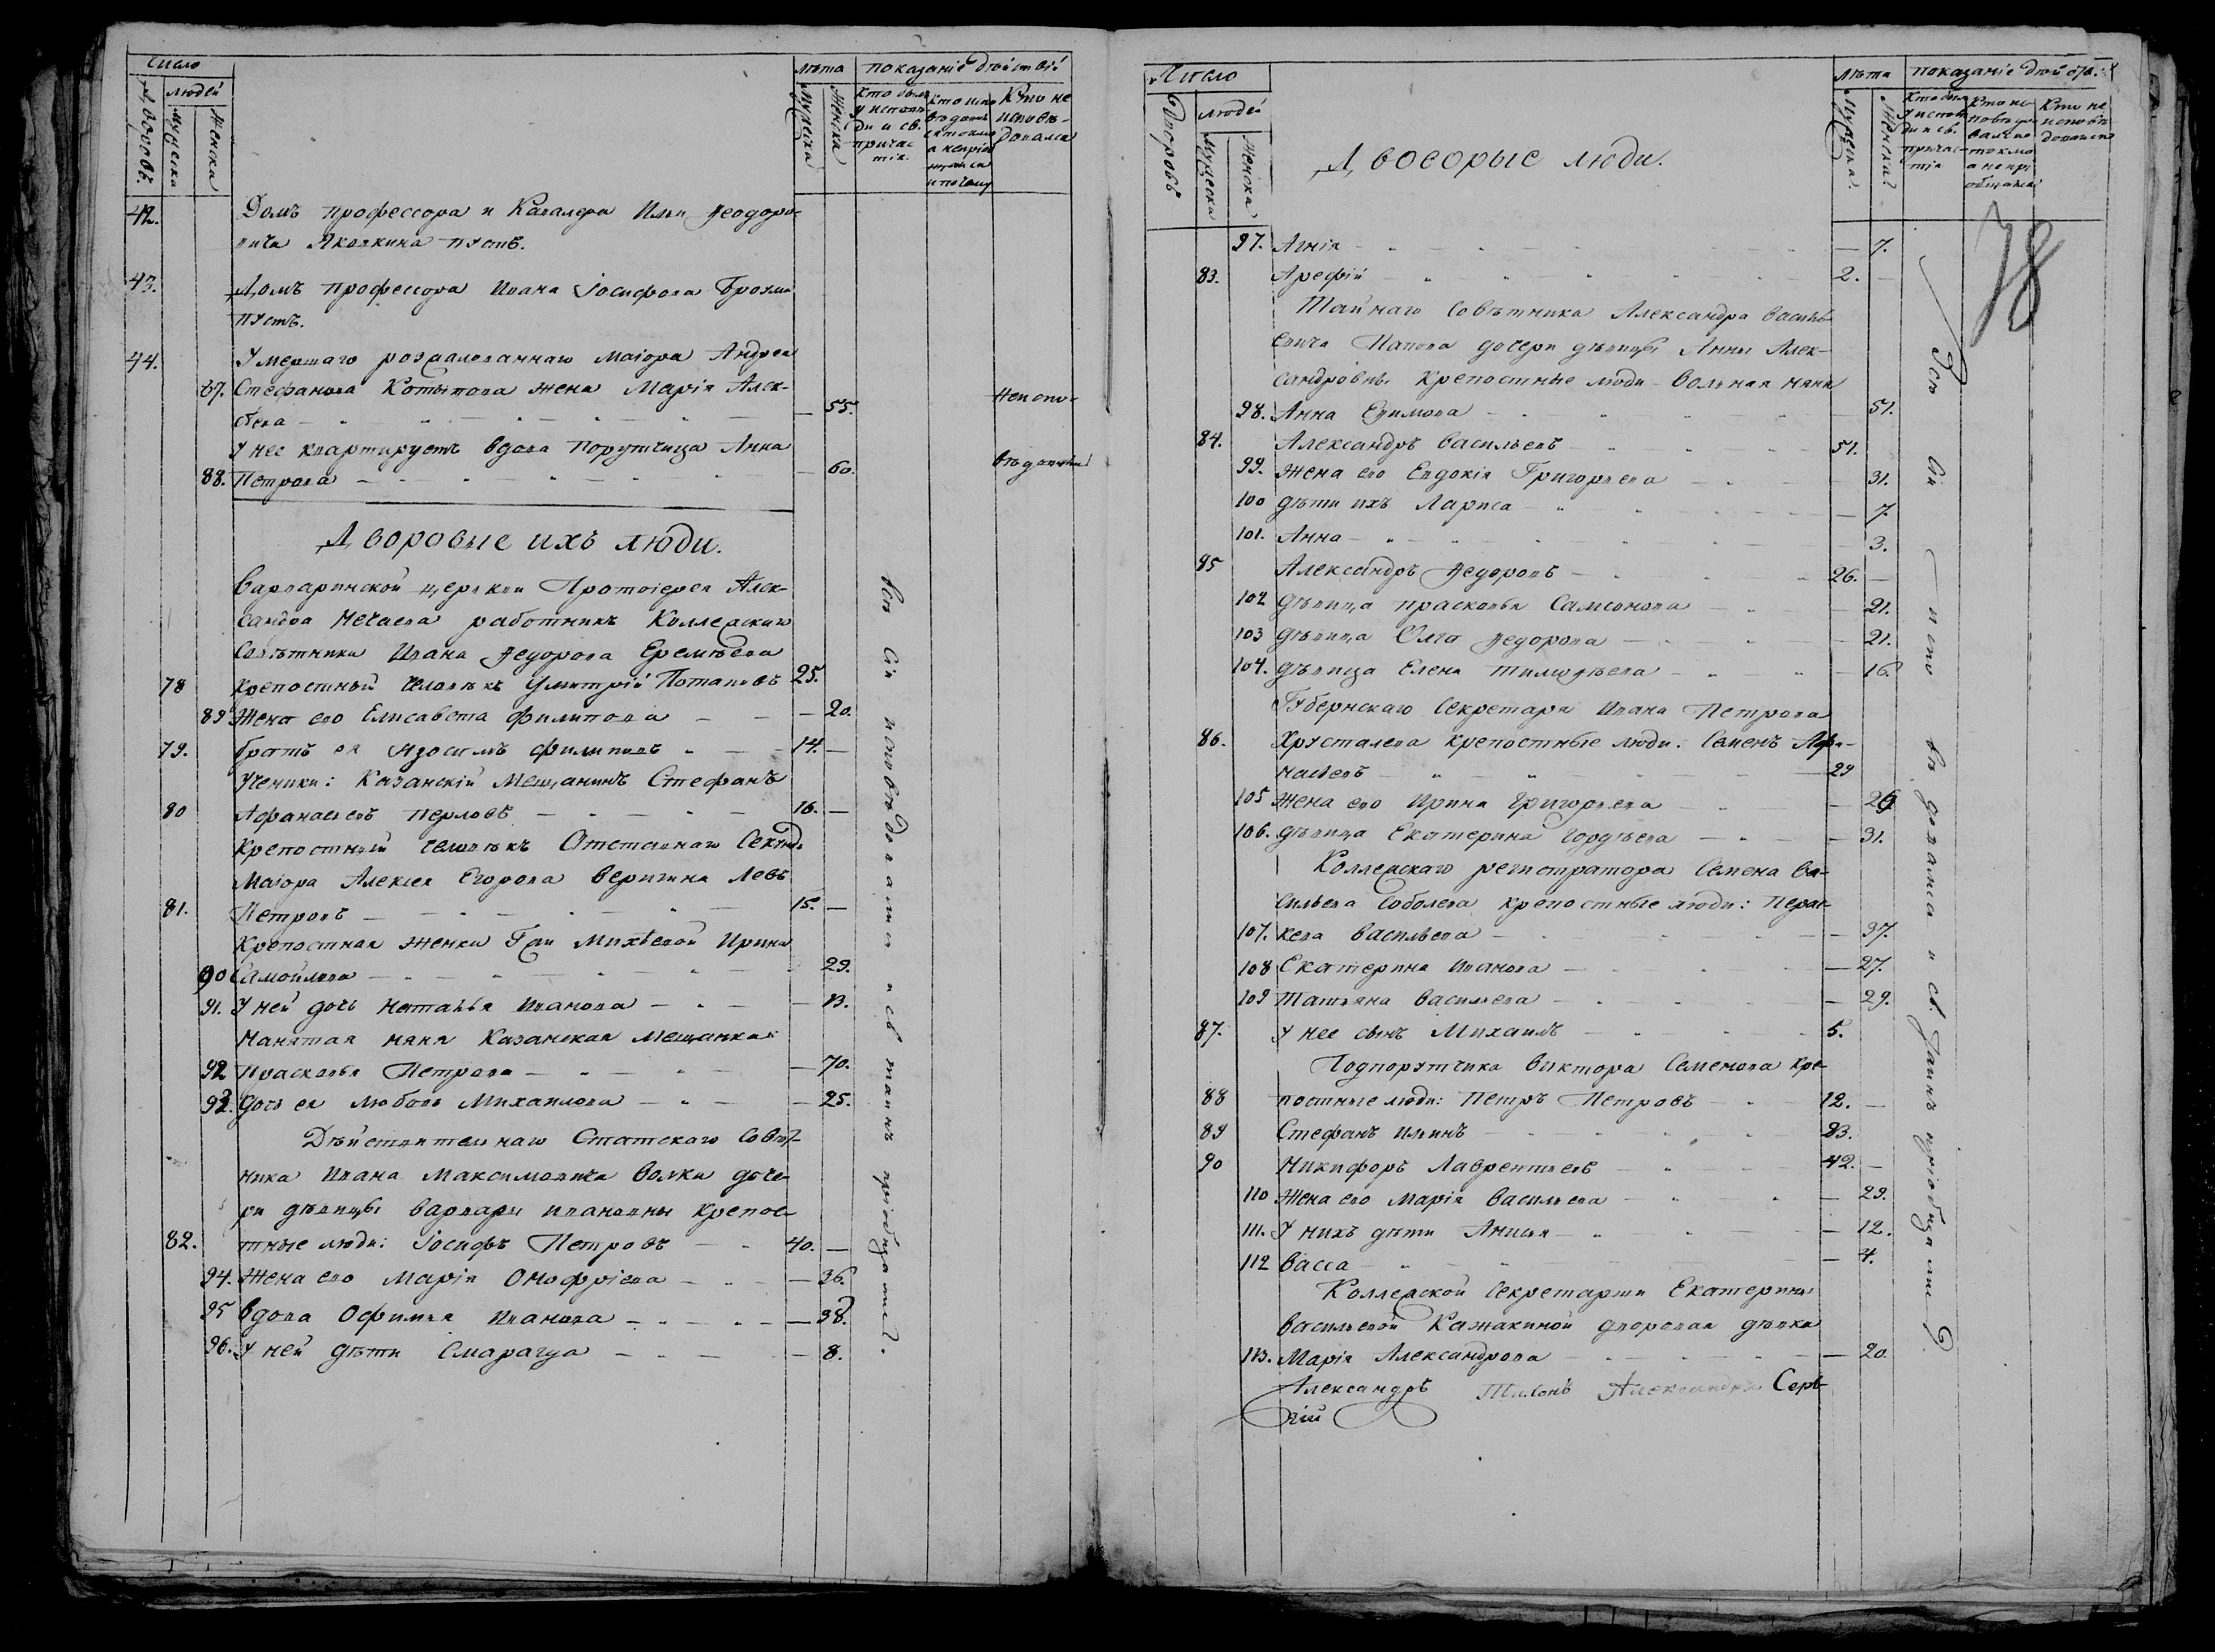 Число
людей
Дворовъ
Мужеска
Женска
лѣта
Мужеска
Женска
показаніе дѣйствій
Кто были у исповѣди и св. причастія.
Кто не исповѣдался
42. Домъ профессора и Кавалера Ильи Ѳеодоро-
вича Яковкина пустъ.
43. Домъ профессора Ивана Іосифова Броума
пустъ.
44. Умершаго Маіора Андрея
87. Стефанова Котытова жена Марія Алек-
сѣева — 55. Неиспо-
У нее квартируетъ вдова Порутчица Анна
88. Петрова — 60. вѣдовались
Дворовые ихъ люди.
Варваринской церкви Протоіерея Алек-
сандра Нечаева работникъ Коллежскаго
Совѣтника Ивана Ѳедорова Еремѣева
78 крепостный человѣкъ Димитрій Потаповъ 25.
89 Жена его Елисавета Филипова — 20.
79. братъ ея Изосимъ Филиповъ 14. —
Ученики: Казанскій Мещанинъ Стефанъ
80 Афанасьевъ Перловъ 16. —
Крепостный человѣкъ Отставнаго Секундъ
Маіора Алексея Егорова Веригина Левъ
81. Петровъ 15. —
Крепостная женка Гжи Михѣевой Ирина
90 Самойлова 29.
91. У ней дочь Наталья Иванова — 13.
Нанятая няня Казанская Мещанка
92 Прасковья Петрова — 70.
93. Дочь ея Любовь Михаилова — 25.
Дѣйствительнаго Статскаго Совѣт-
ника Ивана Максимовича Волки доче-
ри дѣвицы Варвары Ивановны крепос-
82. тные люди: Іосифъ Петровъ 40. —
94. Жена его Марія Онофріева — 36.
95 вдова Офимья Иванова — 38.
96. У ней дѣти Смарагда — 8.
Всѣ сіи исповѣдовались и св. таинъ пріобщались.
Число
людей
Дворовъ
Мужеска
Женска
Дворовые люди.
лѣта
Мужеска
Женска
показаніе дѣйств.
Кто были у исповѣди и св. причастія
Кто исповѣдывался токмо а не пріобщался
Кто не исповѣдовался
78
97. Агнія — 7.
83. Арефій 2. —
Тайнаго Совѣтника Александра Василь-
евича Попова дочери дѣвицы Анны Алек-
сандровны Крепостные люди вольная няня
98. Анна Ефимова — 51.
84. Александръ Васильевъ 51.
99. Жена его Евдокія Григорьева — 31.
100 дѣти ихъ Лариса — 7.
101. Анна — 3.
85 Александръ Ѳедоровъ 26. —
102 дѣвица Прасковья Самсонова — 21.
103 дѣвица Олга Ѳедорова — 21.
104. дѣвица Елена Тимоѳѣева — 16.
Губернскаго Секретаря Ивана Петрова
86. Хрусталева крепостные люди: Семенъ Афа-
насьевъ 29
105 Жена его Ирина Григорьева — 26
106. дѣвица Екатерина Гордѣева — 31.
Коллежскаго регистратора Семена Ва-
сильева Соболева крепостные люди: Парас-
107. кева Васильева — 37.
108 Екатерина Иванова — 27.
109 Татьяна Васильева — 29.
87. У нее сынъ Михаилъ 5.
Подпорутчика Виктора Семенова кре-
88 постные люди: Петръ Петровъ 12. —
89 Стефанъ Ильинъ 23.
90 Никифоръ Лаврентьевъ 42. —
110 Жена его Марія Васильева — 29.
111. У нихъ дѣти Анисья — 12.
112 Васса — 4.
Коллежской Секретарши Екатерины
Васильевой Казакиной дворовая дѣвка
113. Марія Александрова — 20.
Александръ Александръ Серг-
гій
Всѣ сіи исповѣдовались и св. Таинъ пріобщались